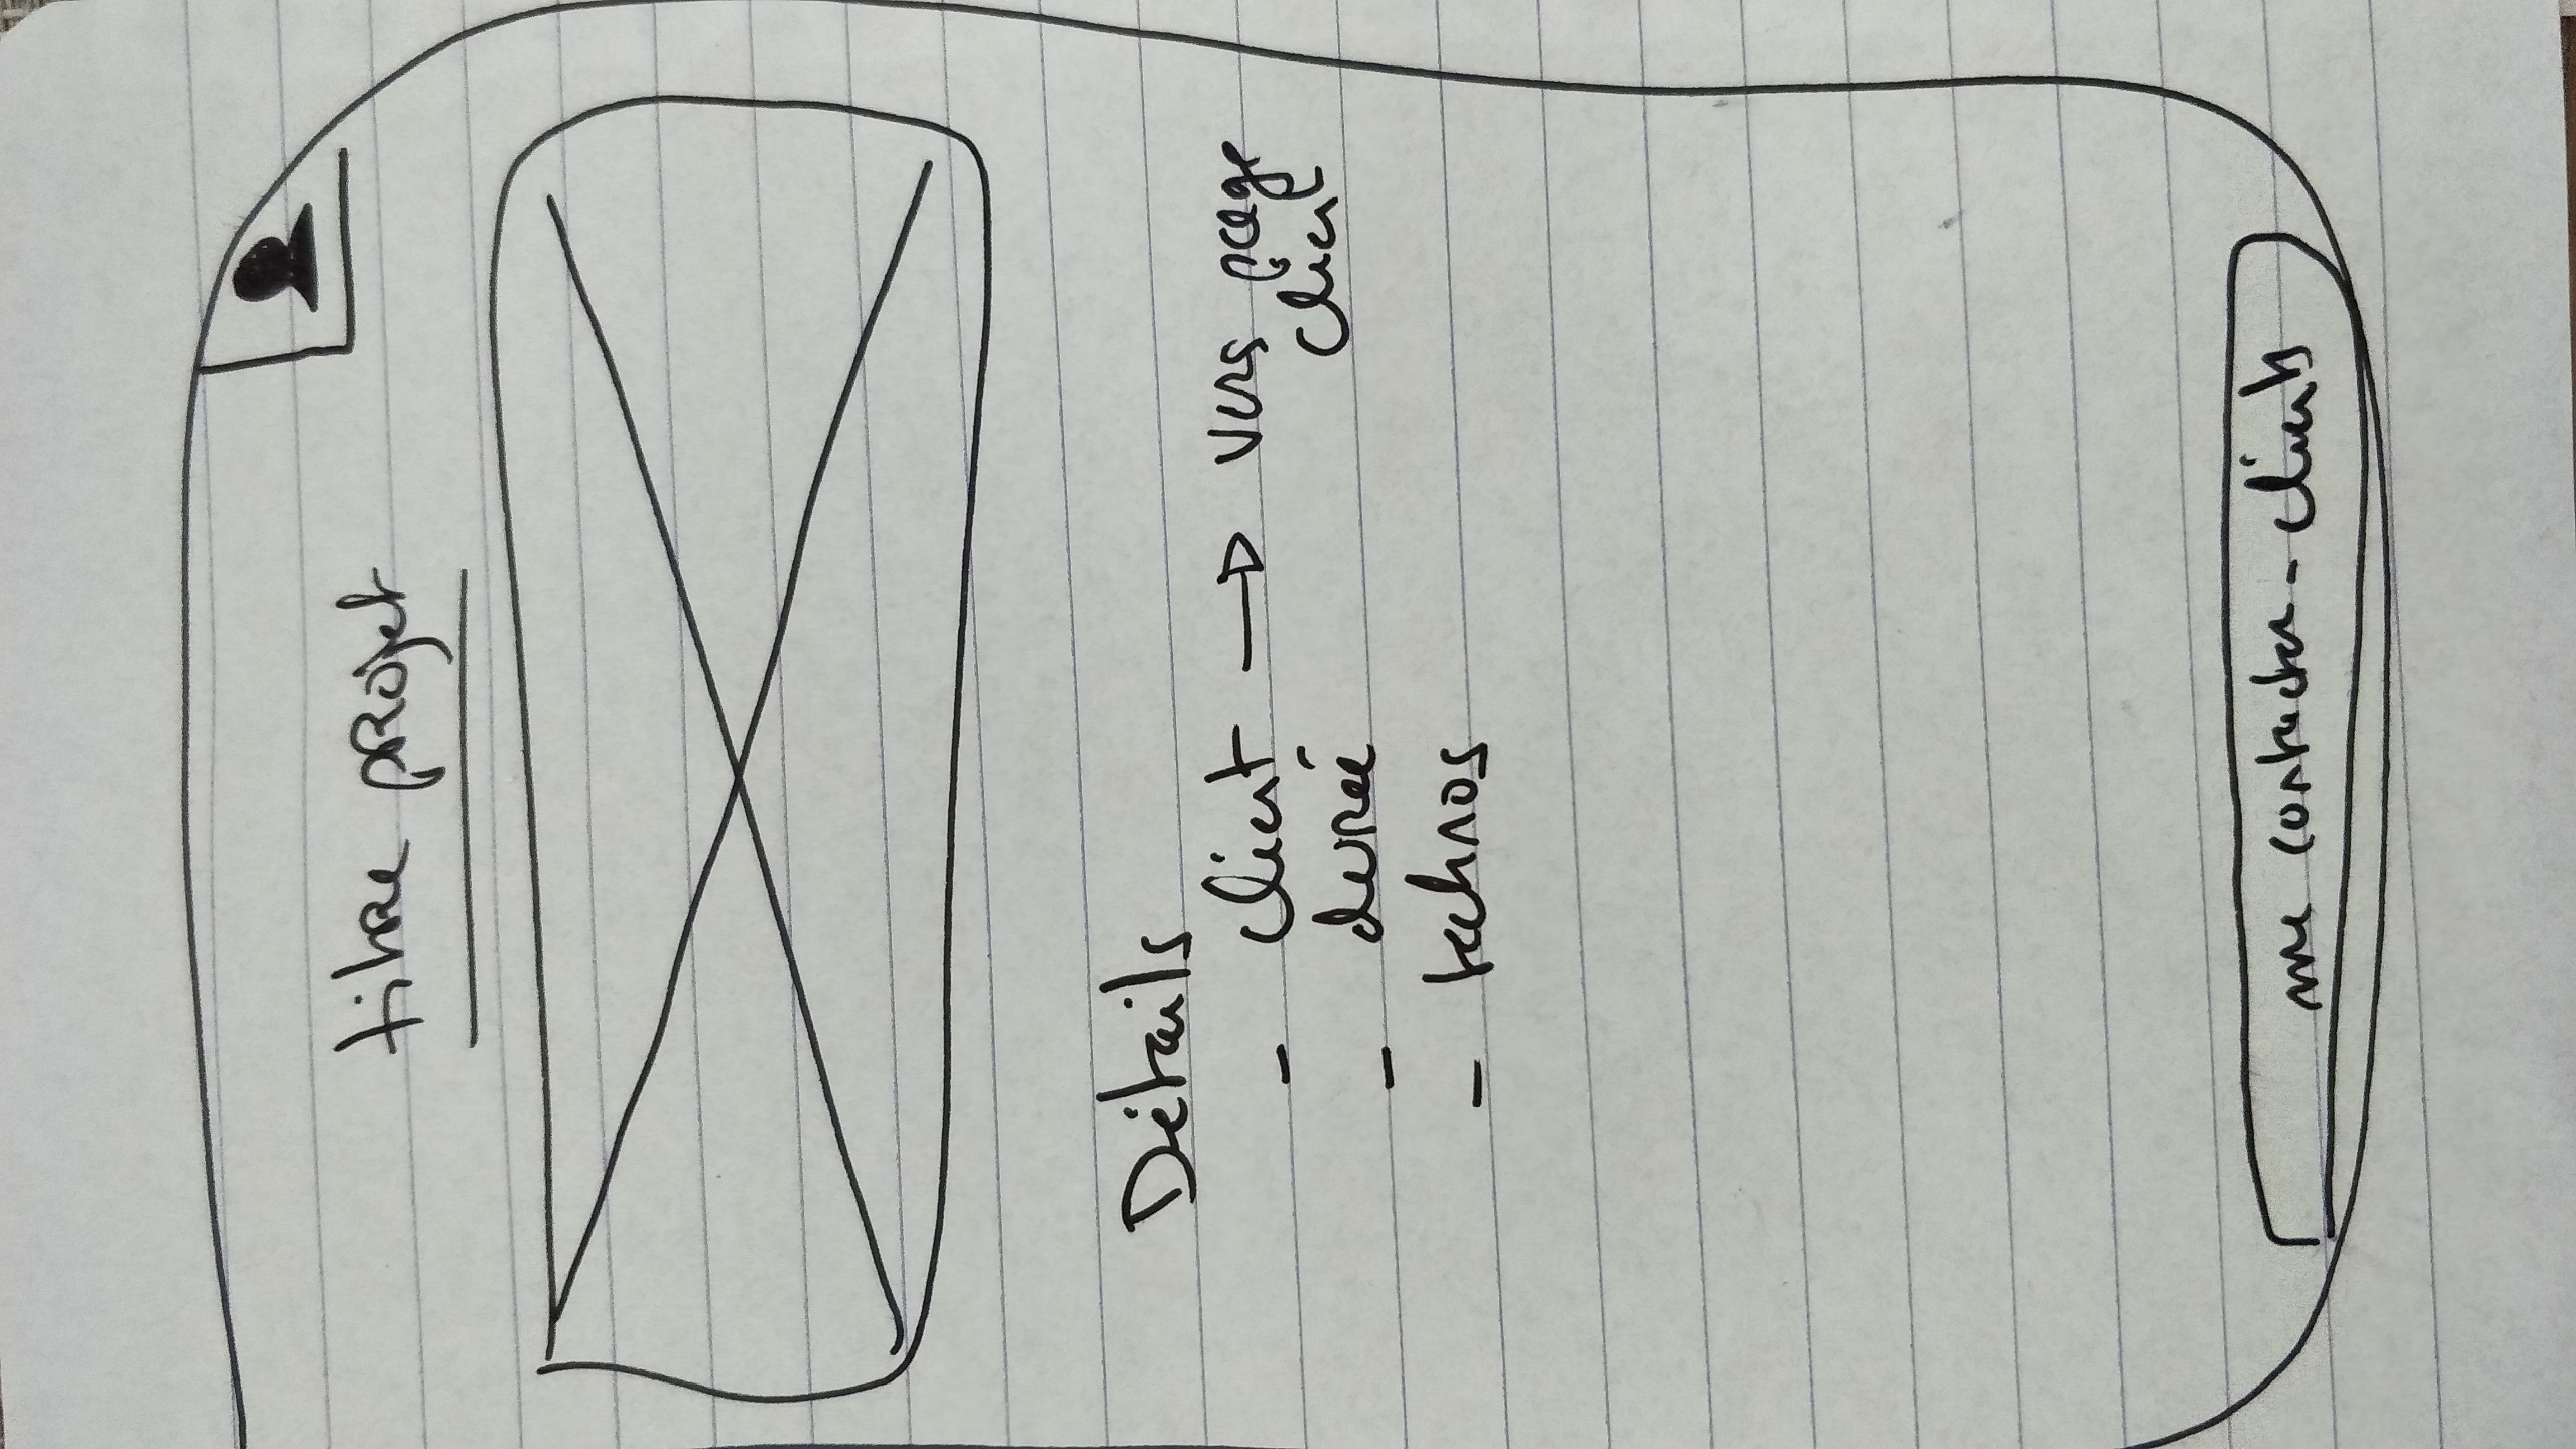 titre projet
Détails
- client → vers page
client
- durée
- technos
me contacter - clients